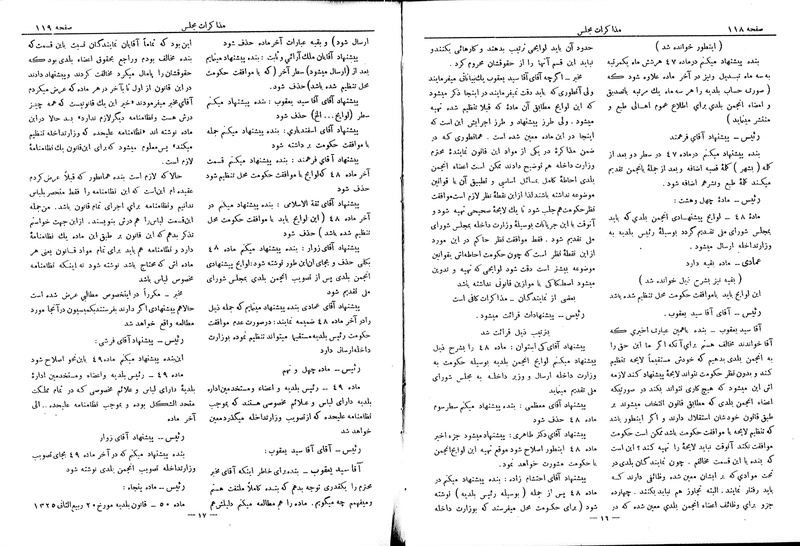 صفحه ۱۱۸
مذاکرات مجلس
( اینطور خوانده شد )
بنده پیشنهاد میکنم درماده ۴۷ هرشش ماه یکمرتبه
به سه ماه تبدیل ونیز در آخر ماده علاوه شود که
( صورت حساب بلدیه را هر سه ماه یك مرتبه باتصدیق
و امضاء انجمن بلدی برای اطلاع عموم اهالی طبع و
منتشر نمایند )
رئیس ــ پیشنهاد آقای فرهمند.
بنده پیشنهاد میکنم درماده ۴۷ در سطر دو بعد از
کلمه ( بشهر ) کلمه قصبه اضافه و بعد از جمله بانجمن تقدیم
میکنند کلمه طبع ونشرهم اضافه شود.
رئیس ــ ماده چهل وهشت :
مادهٔ ۴۸ ــ لوایح پیشنهادی انجمن بلدی که باید
بمجلس شورای ملی تقدیم گردد بوسیلهٔ رئیس بلدیه به
وزارتداخله ارسال میشود .
عمادی ــ ماده بقیه دارد
( بقیه نیز بشرح ذیل خوانده شد )
این لوایح باید باموافقت حکومت محل تنظیم شده باشد
رئیس ــ آقای آقا سید یعقوب .
آقا سید یعقوب ــ بنده باهمین عبارت اخیری که
آقا خواندند مخالف هستم برای آنکه اگر ما این حق را
به انجمن بلدی بدهیم که خودش مستقیماً لایحه تنظیم
کند و بدون نظر حکومت نتواند لایحهٔ پیشنهاد کند لازمه
اش این میشود که هیچ کاری نتواند بکند در صورتیکه
انجمن بلدی که مطابق قانون انتخاب میشوند بر
طبق قانون خودشان استقلال دارند و اگر اینطور باشد
که تنظیم لایحه با موافقت حکومت باشد ممکن است حکومت
موافقت نکند آنوقت نباید لایحهٔ را تهیه کنند ؟ این است
که بنده با این قسمت مخالفم . چون نمایندگان بلدی در
تحت موادی که بر ایشان معین شده وظائفی دارند که
باید رفتار نمایند. البته تجاوز هم نباید بکنند . چهارده
جزو برای وظائف اعضاء انجمن بلدی معین شده که در
حدود آن باید لوایحی ترتیب بدهند و کارهائی بکنند و
نباید این قسم آنها را از حقوقشان محروم کرد .
مخبر ــ اگرچه آقای آقا سید یعقوب یك بیاناتی میفرمایند
ولی آنطوری که باید دقت نمیفرمایند در اینجا ذکر میشود
که این لوایح مطابق آن مادهٔ که قبلا تنظیم شده تهیه
میشود . ولی طرز پیشنهاد و طرز اجرایش این است که
اینجا در این ماده معین شده است . همانطوری که در
ضمن مذاکرهٔ در یکی از مواد این قانون نمایندهٔ محترم
وزارت داخله هم توضیح دادند ممکن است اعضاء انجمن
بلدی احاطهٔ کامل بمسائل اساسی و تطبیق آن با قوانین
موضوعه نداشته باشند لذا از این نقطهٔ نظر لازم است موافقت
نظر حکومت هم جلب شود تا یك لایحهٔ صحیحی تهیه شود و
آنوقت با این جریانات بوسیلهٔ وزارت داخله بمجلس شورای
ملی تقدیم شود. فقط موافقت نظر حاکم در این مورد
از این نقطهٔ نظر است که چون حکومت احاطه اش بقوانین
موضوعه بیشتر است دقت شود لوایحی که تهیه و تدوین
میشود اصطکاکی با موازین قانونی نداشته باشد
بعضی از نمایندگان ــ مذاکرات کافی است
رئیس ــ پیشنهادات قرائت میشود .
بترتیب ذیل قرائت شد
پیشنهاد آقای کی استوان : ماده ۴۸ را بشرح ذیل
پیشنهاد مینمایم لوایح انجمن بلدی بوسیله حکومت به
وزارت داخله ارسال و وزیر داخله به مجلس شورای ملی
تقدیم مینماید
پیشنهاد آقای معظمی : بنده پیشنهاد میکنم سطر سوم
ماده ۴۸ حذف شود
پیشنهاد آقای دکتر طاهری : پیشنهاد میشود جزء اخیر
ماده ۴۸ اینطور اصلاح شود موقع تهیه این لوایح انجمن
با حکومت مشورت خواهد نمود.
پیشنهاد آقای احتشام زاده : بنده پیشنهاد میکنم در
ماده ۴۸ پس از جمله ( بوسیله رئیس بلدیه ) نوشته
شود ( برای حکومت محل میفرستد که بوزارت داخله
ــ ۱۶ ــ
مذاکرات مجلس
صفحه ۱۱۹
ارسال شود ) و بقیه عبارات آخر ماده حذف شود
پیشنهاد آقایان ملك آرائی و ثابت : بنده پیشنهاد میکنم
بعد از (ارسال میشود) سطر آخر ( که با موافقت حکومت
محل تنظیم شده باشد) حذف شود.
پیشنهاد آقای آقا سید یعقوب : بنده پیشنهاد میکنم
سطر (لوایح... الخ) حذف شود
پیشنهاد آقای اسفندیاری : بنده پیشنهاد میکنم جمله
با موافقت حکومت بر داشته شود
پیشنهاد آقای فرهمند : بنده پیشنهاد میکنم قسمت
آخر ماده ۴۸ که لوایح با موافقت حکومت محل تنظیم شود
حذف شود
پیشنهاد آقای ثقة الاسلامی : بنده پیشنهاد میکنم در
آخر ماده ۴۸ ( این لوایح باید با موافقت حکومت محل
تنظیم شده باشد ) حذف شود
پیشنهاد آقای زوار : بنده پیشنهاد میکنم ماده ۴۸
بکلی حذف و بجای آن این طور نوشته شود: لوایح پیشنهادی
انجمن بلدی پس از تصویب انجمن بلدی بمجلس شورای
ملی تقدیم شود
پیشنهاد آقای عمادی بنده پیشنهاد مینمایم که جمله ذیل
را در آخر ماده ۴۸ ضمیمه نمایند : درصورت عدم موافقت
حکومت رئیس بلدیه مستقیماً میتواند تنظیم نموده بوزارت
داخله ارسال دارد
رئیس ــ ماده چهل و نهم
ماده ۴۹ ــ رئیس بلدیه و اعضاء و مستخدمین اداره
بلدیه دارای لباس و علائم مخصوصی هستند که بموجب
نظامنامه علیحده که از تصویب وزارتداخله میگذرد معین
خواهد شد
رئیس ــ آقای آقا سید یعقوب :
آقا سید یعقوب ــ بنده برای خاطر اینکه آقای مخبر
محترم را یکقدری توجه بدهم که بنده کاملا ملتفت هستم
ومیفهمم چه میگویم. ماده را هم مطالعه میکنم دلیلش هم
این بود که تماماً آقایان نمایندگان نسبت باین قسمت که
بنده مخالف بودم وراجع بحقوق اعضاء بلدی بود که
حقوقشان را پامال میکرد مخالفت کردند و پیشنهاد دادند
در این قانون از اول تا بآخر در هر ماده که عرض میکردم
آقای مخبر میفرمودند «خیر این یك قانونیست که همه چیز
درش هست ونظامنامه دیگر لازم ندارد» بعد حالا در این
ماده نوشته اند «نظامنامه علیحده که وزارتداخله تنظیم
میکند» پس معلوم میشود که برای این قانون یك نظامنامهٔ
لازم است.
حالا که لازم است بنده همانطور که قبلا عرض کردم
عقیده ام این است که این نظامنامه را فقط منحصر بلباس
ندانیم ونظامنامه برای اجرای تمام قانون باشد. من جمله
این قسمت لباس را هم درش بنویسند. از این جهت خواستم
تذکر بدهم که این قانون بر طبق این ماده یك نظامنامهٔ
دارد و نظامنامه هم باید برای تمام مواد قانون یعنی هر
ماده اش که محتاج باشد نوشته شود نه اینکه نظامنامه
مخصوص لباس باشد
مخبر ــ مکرراً در اینخصوص مطالبی عرض شده است
هم پیشنهادی اگر دارند بفرستند بکمیسیون در آنجا مورد
مطالعه واقع خواهد شد
رئیس ــ پیشنهاد آقای قرشی :
این بنده پیشنهاد میکنم ماده ۴۹ باین نحو اصلاح شود
ماده ۴۹ ــ رئیس بلدیه و اعضاء ومستخدمین ادارهٔ
بلدیهٔ دارای لباس و علائم مخصوصی که در تمام مملکت
متحد الشکل بوده و بموجب نظامنامه علیحده .. الی
آخر ماده
رئیس ــ پیشنهاد آقای زوار
بنده پیشنهاد میکنم که در آخر ماده ۴۹ بجای تصویب
وزارتداخله تصویب انجمن بلدی نوشته شود
رئیس ــ ماده پنجاه :
ماده ۵۰ ــ قانون بلدیه مورخ ۲۰ ربیع الثانی ۱۳۲۵
ــ ۱۷ ــ